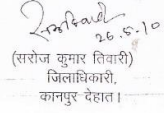 26.5.10
(सरोज कुमार तिवारी)
जिलाधिकारी,
कानपुर देहात।